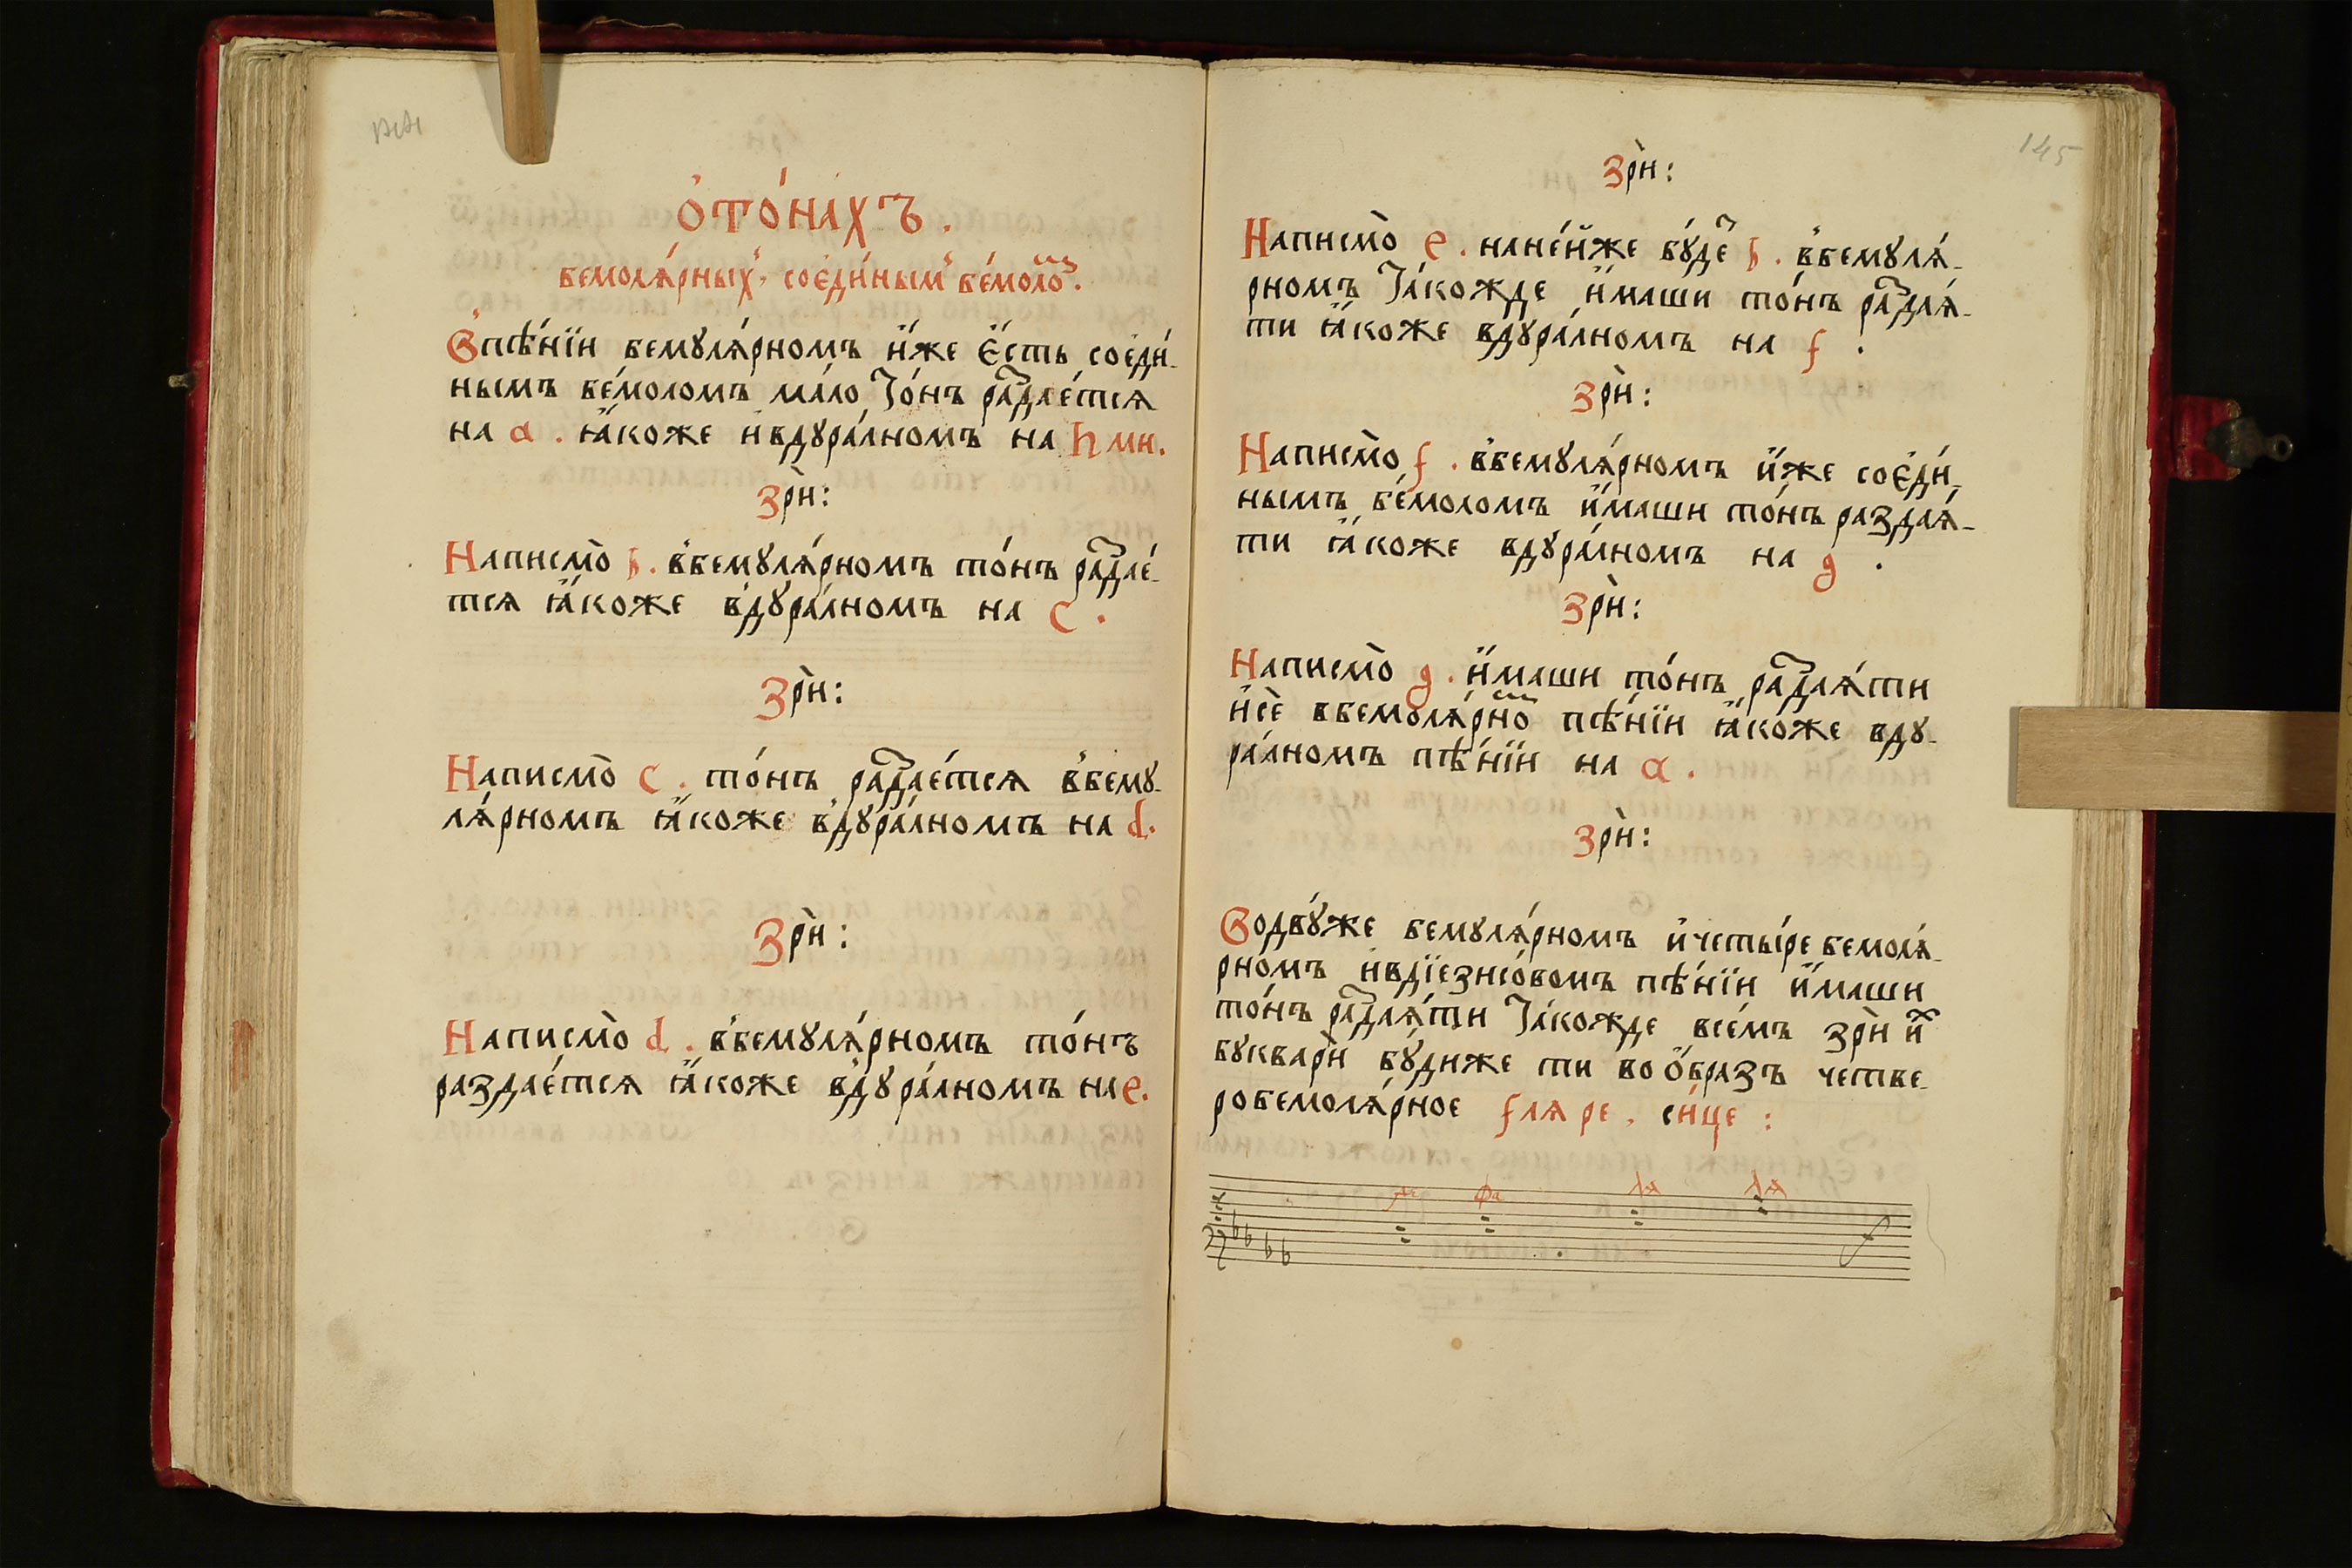 144
ѻ҆то́нахъ .
бемолѧ́рныхъ , соєди́нымъ бе́моломъ .
Впѣ́нїи бемꙋлѧ́рномъ и҆́же є҆́сть соєди́-
нымъ бе́моломъ мало то́нъ раздае́тсѧ
на a . ꙗ҆́коже ивдꙋра́лномъ на h ми .
Зрѝ :
Написмо̀ b . в̾бемꙋлѧ́рномъ то́нъ раздае́-
тсѧ ꙗ҆́коже в̾дꙋра́лномъ на c .
Зрѝ :
Написмо̀ c . то́нъ раздае́тсѧ в̾бемꙋ-
лѧ́рномъ ꙗ҆́коже в̾дꙋра́лномъ на d .
Зрѝ :
Написмо̀ d . в̾бемꙋлѧ́рномъ то́нъ
раздае́тсѧ ꙗ҆́коже в̾дꙋра́лномъ на e .
145
Зрѝ :
Написмо̀ e . нане́йже бꙋ́детъ b . в̾бемꙋлѧ́-
рномъ та́кожде и҆́маши то́нъ раздаѧ́-
ти ꙗ҆́коже вдꙋра́лномъ на f .
Зрѝ :
Написмо̀ f . в̾бемꙋлѧ́рномъ и҆́же соєди́-
нымъ бе́моломъ и҆́маши то́нъ раздаѧ́-
ти ꙗ҆́коже вдꙋра́лномъ на g .
Зрѝ :
Написмо̀ g . и҆́маши то́нъ раздаѧ́ти
и҆сѐ вбемолѧ́рномъ пѣ́нїи ꙗ҆́коже вдꙋ-
ра́лномъ пѣ́нїи на a .
Зрѝ :
Водвꙋ́же бемꙋлѧ́рномъ и҆четы́ре бемолѧ́-
рномъ ивдїезисо́вомъ пѣ́нїи и҆́маши
то́нъ раздаѧ́ти та́кожде всѐмъ зрѝ из
бꙋкварѝ бꙋ́диже ти во ѻ҆́бразъ четве-
робемолѧ́рное f лѧ ре . си́це :
фа лѧ лѧ